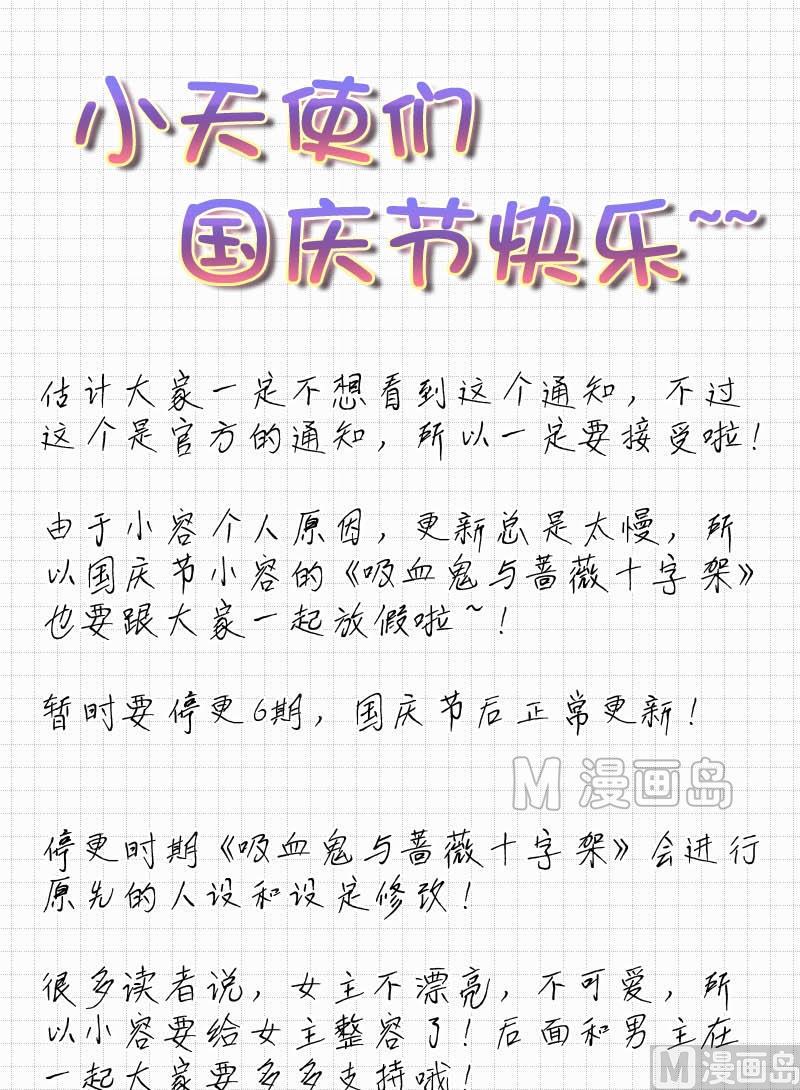 小天使们
国庆节快乐~~
估计大家一定不想看到这个通知，不过
这个是官方的通知，所以一定要接受啦！
由于小容个人原因，更新总是太慢，所
以国庆节小容的《吸血鬼与蔷薇十字架》
也要跟大家一起放假啦~！
暂时要停更6期，国庆节后正常更新！
M 漫画岛
停更时期《吸血鬼与蔷薇十字架》会进行
原先的人设和设定修改！
很多读者说，女主不漂亮，不可爱，所
以小容要给女主整容了！后面和男主在
一起大家要多多支持哦！
M 漫画岛